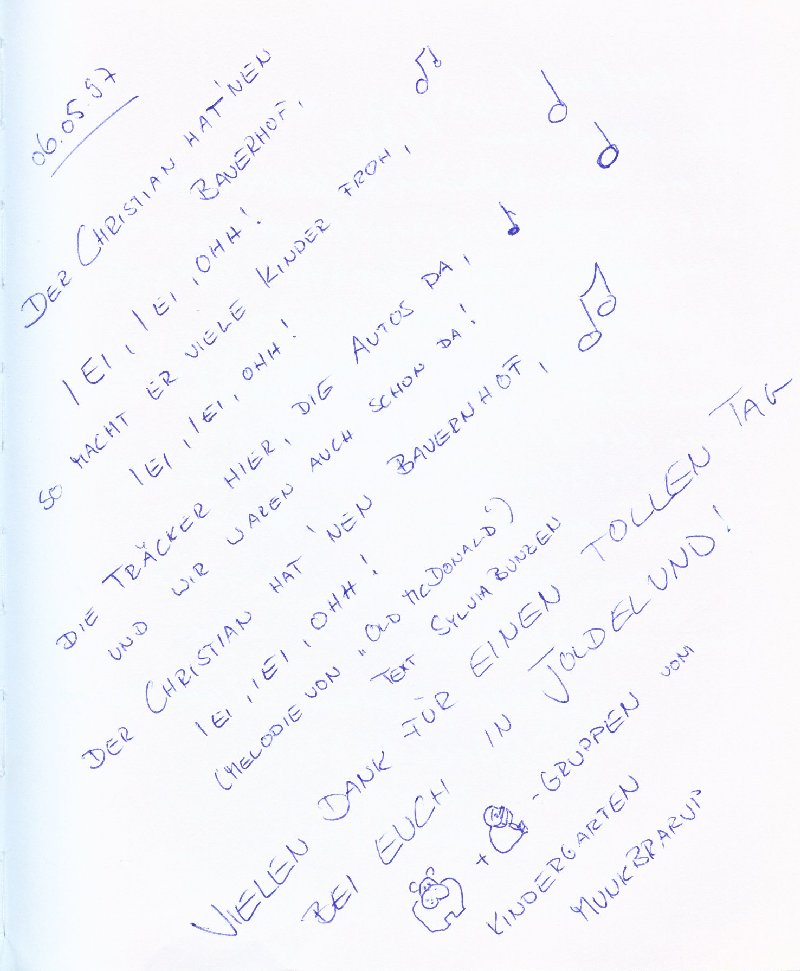 06.05.97
DER CHRISTIAN HAT'NEN
BAUERHOF,
IEI, IEI, OHH!
SO MACHT ER VIELE KINDER FROH,
IEI, IEI, OHH!
DIE TRÄCKER HIER, DIE AUTOS DA,
UND WIR WAREN AUCH SCHON DA!
DER CHRISTIAN HAT 'NEN BAUERNHOF,
IEI, IEI, OHH!
(MELODIE VON „OLD MCDONALD")
TEXT SYLVIA BUNZEN
VIELEN DANK FÜR EINEN TOLLEN TAG
BEI EUCH IN JOLDELUND!
+ -GRUPPEN VOM
KINDERGARTEN
MUNKBRARUP